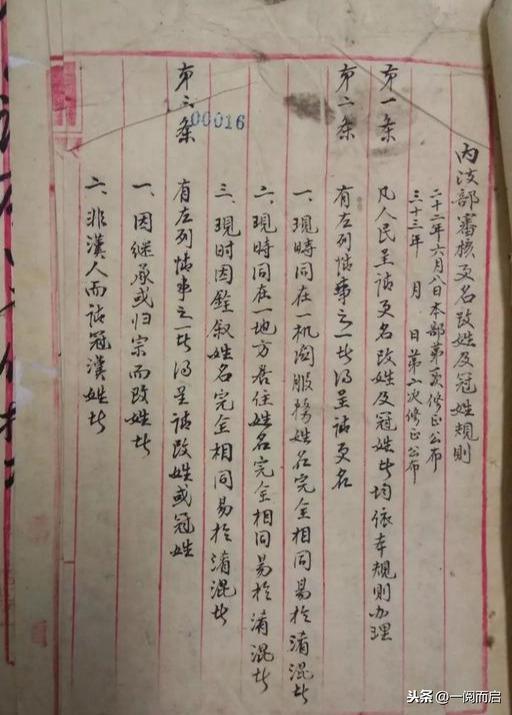 内政部審核更名改姓及冠姓規則
二十二年六月八日本部第一次修正公布
三十三年 月 日第二次修正公布
第一条 凡人民呈请更名改姓及冠姓者均依本规则办理
第二条 有左列情事之一者得呈请更名
一、现時同在一机関服務姓名完全相同易於淆混者
二、现時同在一地方居住姓名完全相同易於淆混者
三、现时因銓叙姓名完全相同易於淆混者
第三条 有左列情事之一者得呈请改姓或冠姓
一、因继承或归宗而改姓者
二、非漢人而请冠漢姓者
00016
头条 @一阅而启